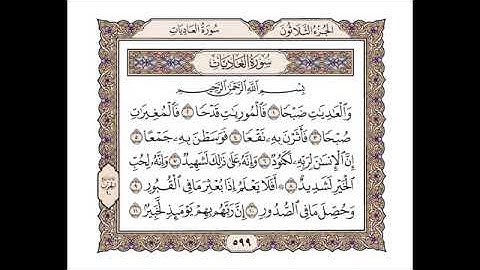 الجزء الثلاثون
سورة العاديات
سورة العاديات
بِسْمِ اللَّهِ الرَّحْمَٰنِ الرَّحِيمِ
وَالْعَادِيَاتِ ضَبْحًا ١ فَالْمُورِيَاتِ قَدْحًا ٢ فَالْمُغِيرَاتِ
صُبْحًا ٣ فَأَثَرْنَ بِهِ نَقْعًا ٤ فَوَسَطْنَ بِهِ جَمْعًا ٥
إِنَّ الْإِنسَانَ لِرَبِّهِ لَكَنُودٌ ٦ وَإِنَّهُ عَلَىٰ ذَٰلِكَ لَشَهِيدٌ ٧ وَإِنَّهُ لِحُبِّ
الْخَيْرِ لَشَدِيدٌ ٨ أَفَلَا يَعْلَمُ إِذَا بُعْثِرَ مَا فِي الْقُبُورِ ٩
وَحُصِّلَ مَا فِي الصُّدُورِ ١٠ إِنَّ رَبَّهُم بِهِمْ يَوْمَئِذٍ لَّخَبِيرٌ ١١
٥٩٩